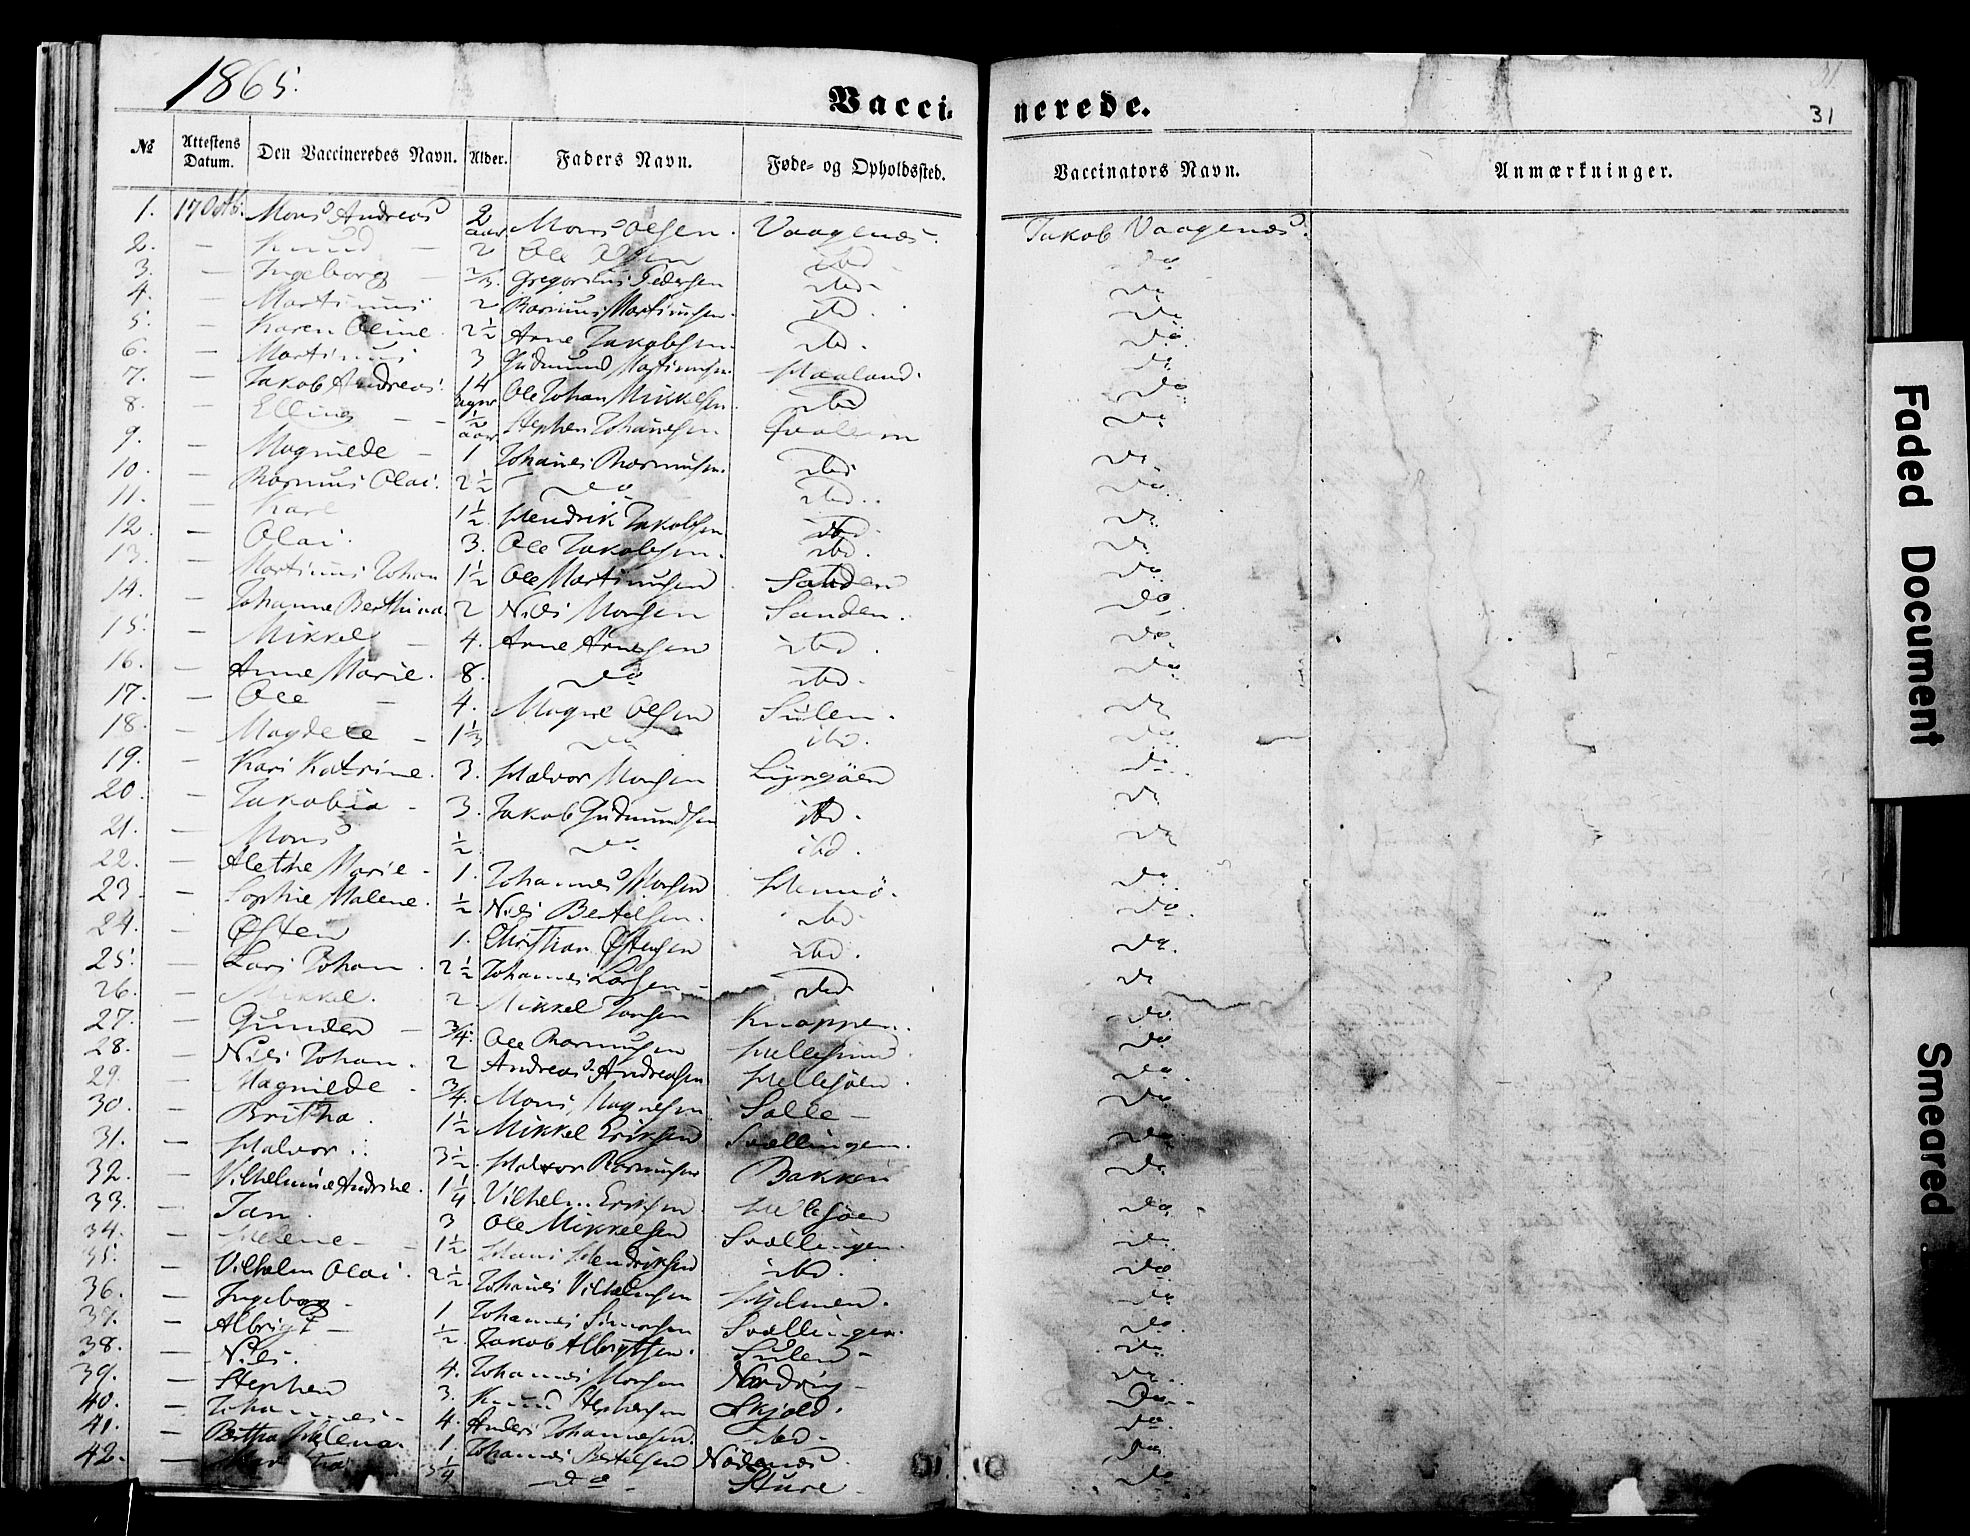 1865.
Vacci- nerede.
31
№ Attestens Datum. Den Vaccineredes Navn. Alder. Faders Navn. Føde- og Opholdssted. Vaccinators Navn. Anmærkninger.
1. 17 Octb. Mons Andreas 2 aar Mons Olsen. Vaagenæs. Jakob Vaagenæs.
2. — Knud — 2 Ole Olsen ibd do
3. — Ingeborg — Gregorius Pedersen ibd do
4. — Martinus 2 Rasmus Martinusen. ibd. do
5. — Karen Oline. 2½ Arne Jakobsen. ibd. do
6. — Martinus 3 Gudmund Martinusen. Haaland. do
7. — Jakob Andreas. 14 Dager Ole Johan Mikkelsen. ibd do
8. — Elling — ½ aar Stephen Johannesen do
9. — Magnilde — 1 Johannes Rasmusen. ibd do
10. — Rasmus Olai. 2½ do ibd. do
11. — Karl 1½ Hendrik Jakobsen ibd. do
12. — Olai. 3. Ole Jakobsen. ibd. do
13. — Martinus Johan 1½ Ole Martinusen Sanden do
14. — Johanne Berthina 2 Niels Monsen Sanden. do
15. — Mikkel — 4. Arne Arnesen ibd. do
16. — Anne Marie. 8. do ibd. do
17. — Ole — 4. Magne Olsen Sulen. do
18. — Magdele — 1⅓ do ibd. do
19. — Kari Katrine. 3. Halvor Monsen Lyngöen do
20. — Jakobia - 3. Jakob Gudmundsen ibd. do
21. — Mons ½ do ibd. do
22. — Alethe Marie - 1. Johannes Monsen Hernö. do
23. — Sophie Malene. ½ Niels Bertelsen. ibd do
24. — Østen 1. Christian Østensen ibd. do
25. — Lars Johan. 2½ Johannes Larsen - ibd do
26. — Mikkel. 2. Mikkel Knappen. do
27. — Gunder — ¾. Ole Rasmusen Hellesund. do
28. — Niels Johan. 2 Andreas Andreasen Hellesöen. do
29. — Magnilde - ¾. Mons Magnesen Salle — do
30. — Britha. 1½ Mikkel Eriksen Sællingen. do
31. — Halvor. 3½. Halvor Rasmusen Bakken do
32. — Vilhelmine Andrine. 1¼ Vilhelm Eriksen. Hellesöen do
33. — Jan 3 Ole Mikkelsen Sællingen. do
34. — Helene — 1½ Hans Hendriksen ibd. do
35. — Vilhelm Olai. 2½ Johannes Vilhelmsen Hjelmen. do
36. — Ingeborg - 1 Johannes Simonsen Sællingen. do
37. — Albrigt — ½. Jakob Albrigtsen. Sulen - do
38. — Niels. 4. Johannes Monsen do
39. — Stephen 3. Knud Stephensen Skjold. do
40. — Johannes - 4. Anders Johannesen. ibd - do
41. — Bertha Helena. 1. Johannes Bertelsen Nødenæs. do
42. — do Sture. do
Faded Document
Smeared